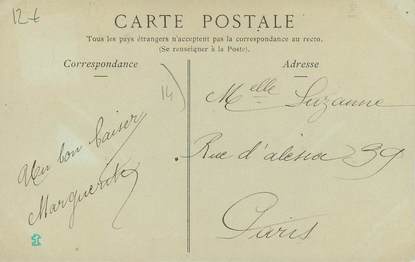 12€
CARTE POSTALE
Tous les pays étrangers n'acceptent pas la correspondance au recto.
(Se renseigner à la Poste).
Correspondance
Adresse
14
Un bon baiser
Marguerite
Melle Suzanne
Rue d'alésia 39
Paris